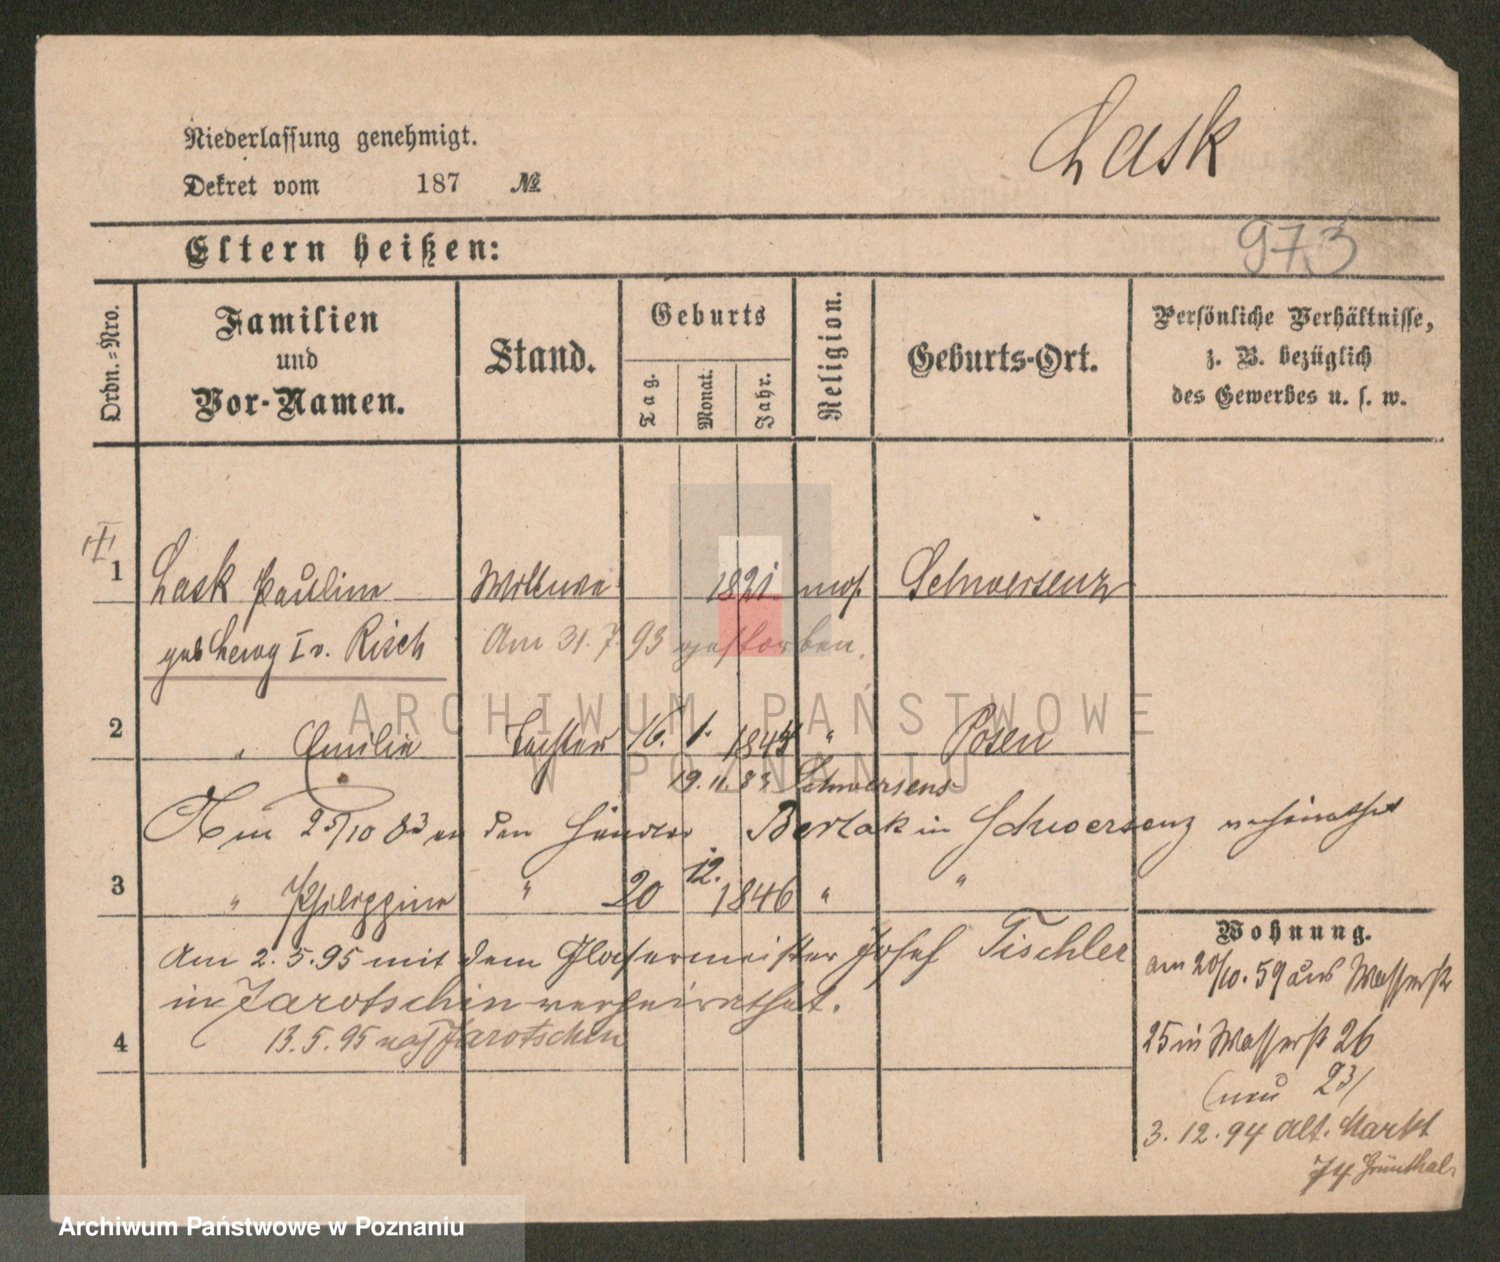 Lask
Niederlassung genehmigt.
Dekret vom 187 №
973
Eltern heißen:
Ordn.-Nro.
Familien
und
Vor-Namen.
Stand.
Geburts
Tag.
Monat.
Jahr.
Religion.
Geburts-Ort.
Persönliche Verhältnisse,
z. B. bezüglich
des Gewerbes u. s. w.
1 Lask Pauline Wittwe 1821 mos. Schwersenz
geb I v. Risch Am 31.7.93 gestorben.
2 " Emilie Tochter 16. 1. 1844 " Posen
19.11.83 Schwersenz
Am 25/10 83 an den Händler in Schwersenz verheirathet
3 " Philippine " 20 12. 1846 " "
Am 2.5.95 mit dem Glasermeister Josef Tischler
in Jarotschin verheirathet.
4 13.5.95 nach Jarotschin
Wohnung.
am 20/10.59 aus Wasserstr
25 in Wasserstr 26
(neu 23)
3.12.94 Alt. Markt
Grünthal
ARCHIWUM PAŃSTWOWE
W POZNANIU
Archiwum Państwowe w Poznaniu